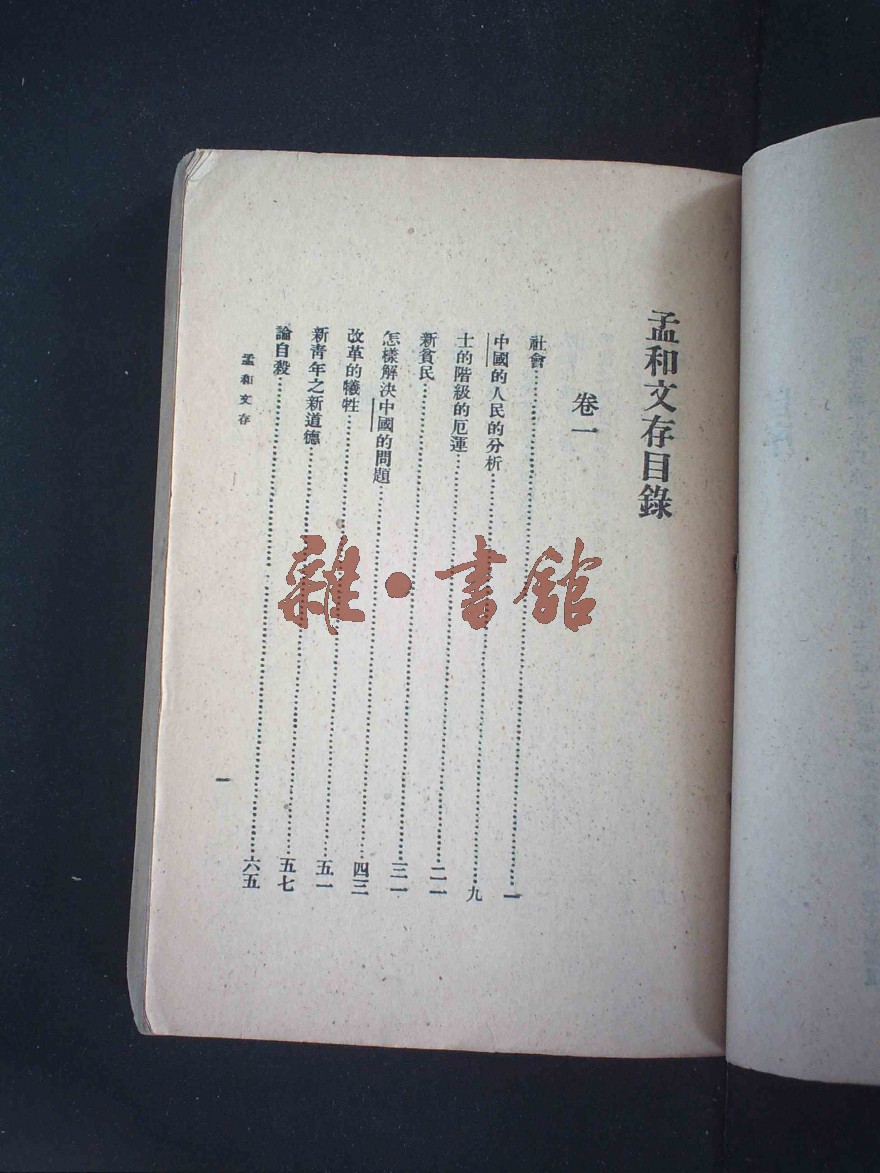 孟和文存目錄
卷一
社會……一
中國的人民的分析……九
士的階級的厄運……二一
新貧民……三一
怎樣解決中國的問題……四三
改革的犧牲……五一
新青年之新道德……五七
論自殺……六五
孟和文存
一
雜·書館